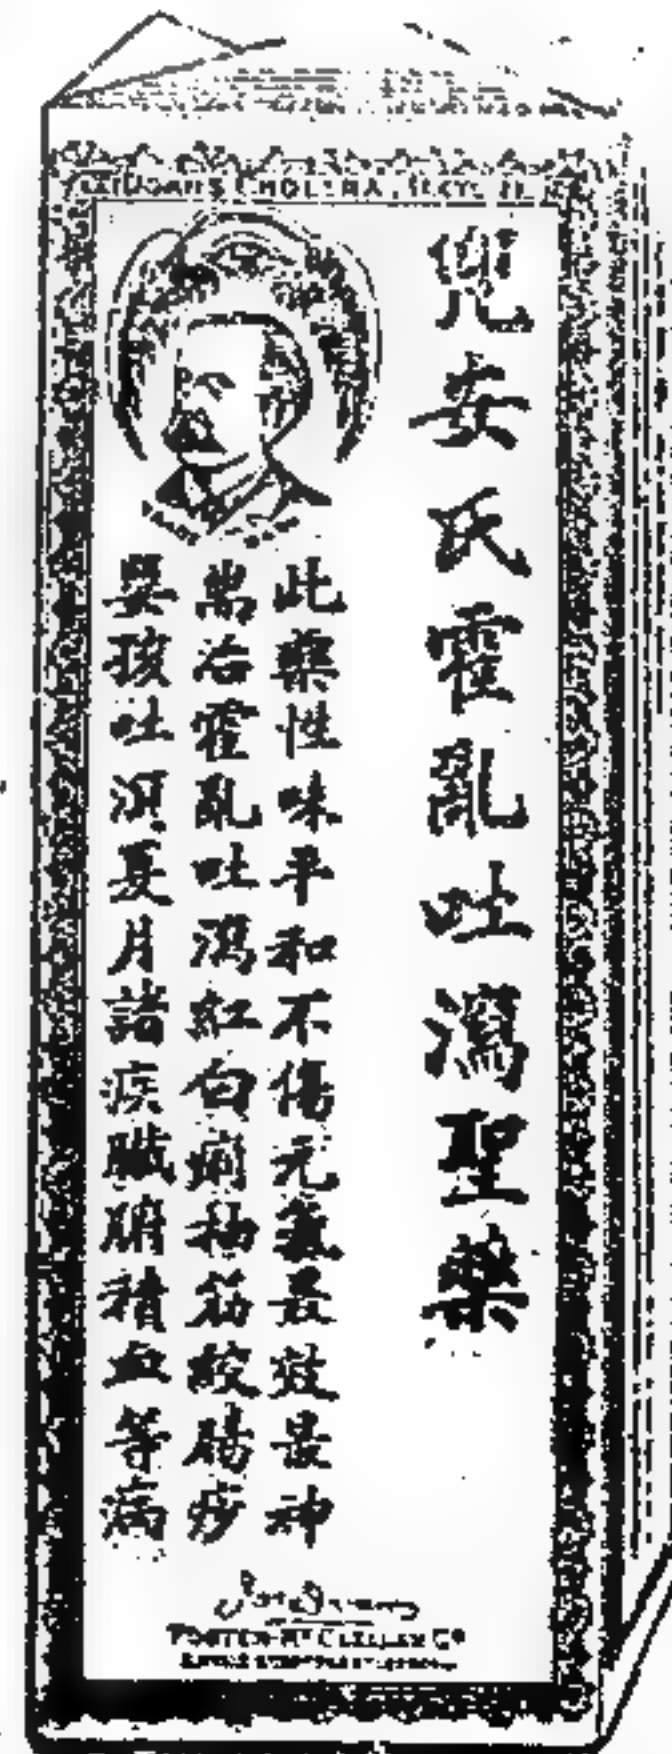 兜安氏霍亂吐瀉聖藥
此藥性味平和不傷元氣最效最神
耑治霍亂吐瀉紅白痢抽筋絞腸痧
嬰孩吐瀉夏月諸疾臟腑積血等病
FOSTER-McCLELLAN Co